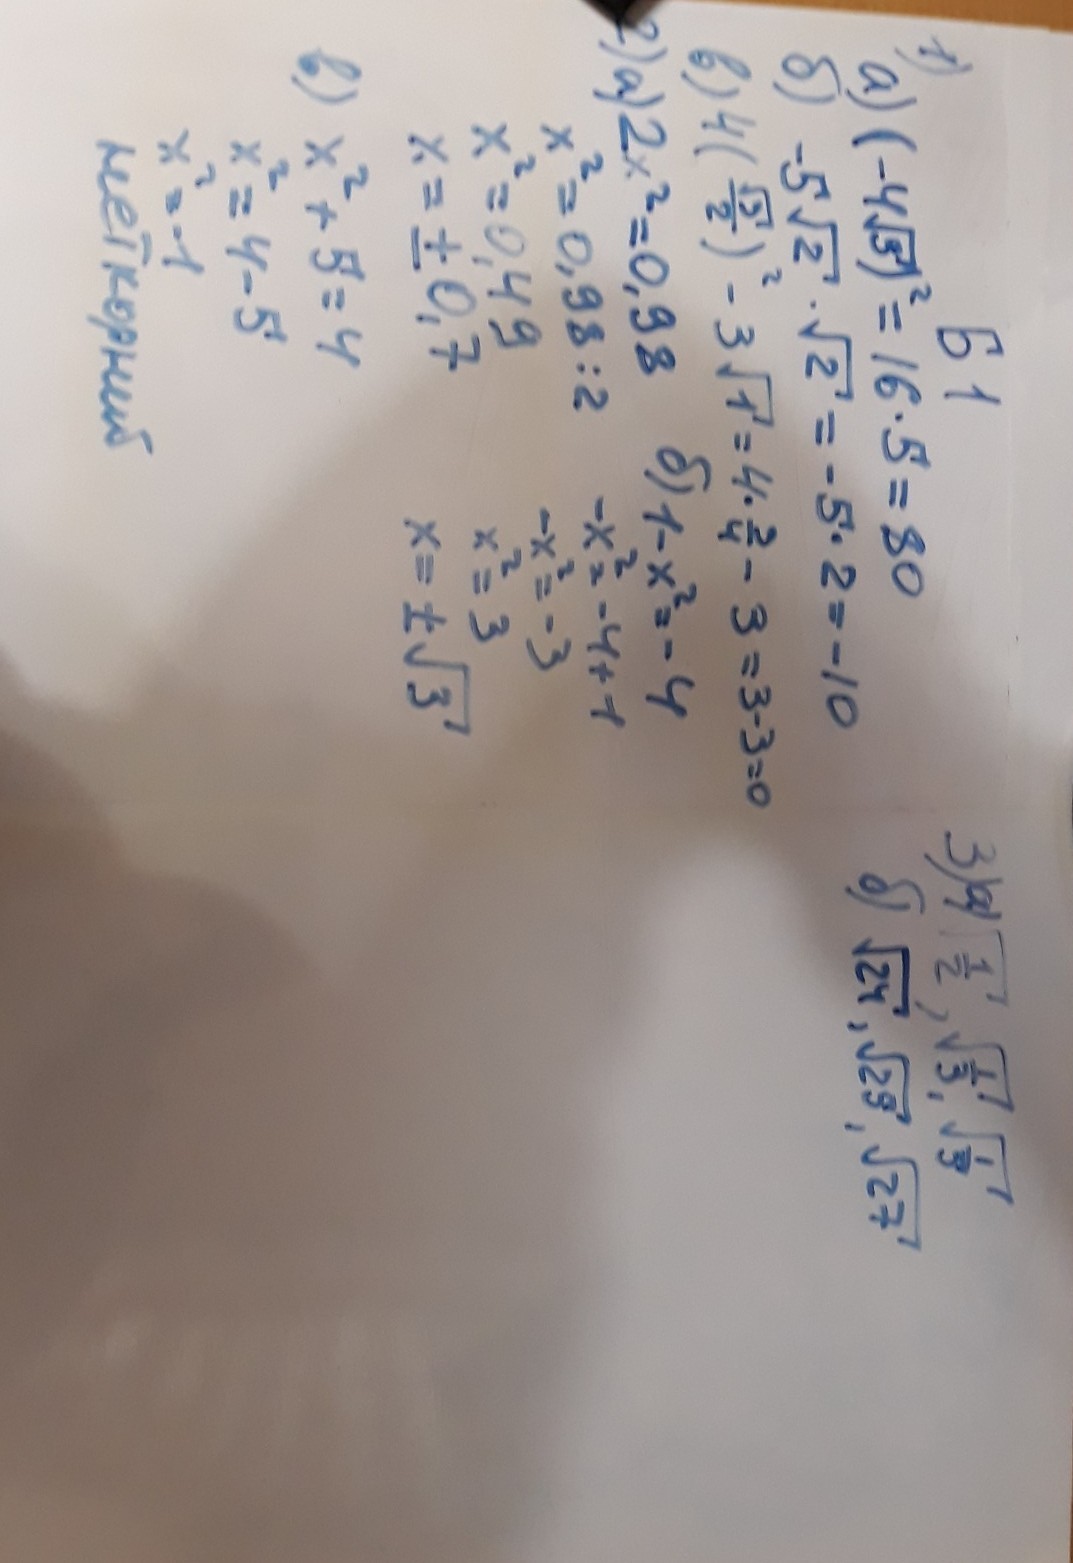 Б 1
1)
а) (-4√5)² = 16·5=80
б) -5√2 · √2 = -5·2=-10
в) 4(√3/2)² - 3√1 = 4·3/4 - 3 = 3-3=0
2) а) 2x²=0,98
x²=0,98:2
x²=0,49
x=±0,7
б) 1-x²=-4
-x²=-4+1
-x²=-3
x²=3
x=±√3
в) x²+5=4
x²=4-5
x²=-1
нет корний
3) а) √1/2, √1/3,
б) √24, √27